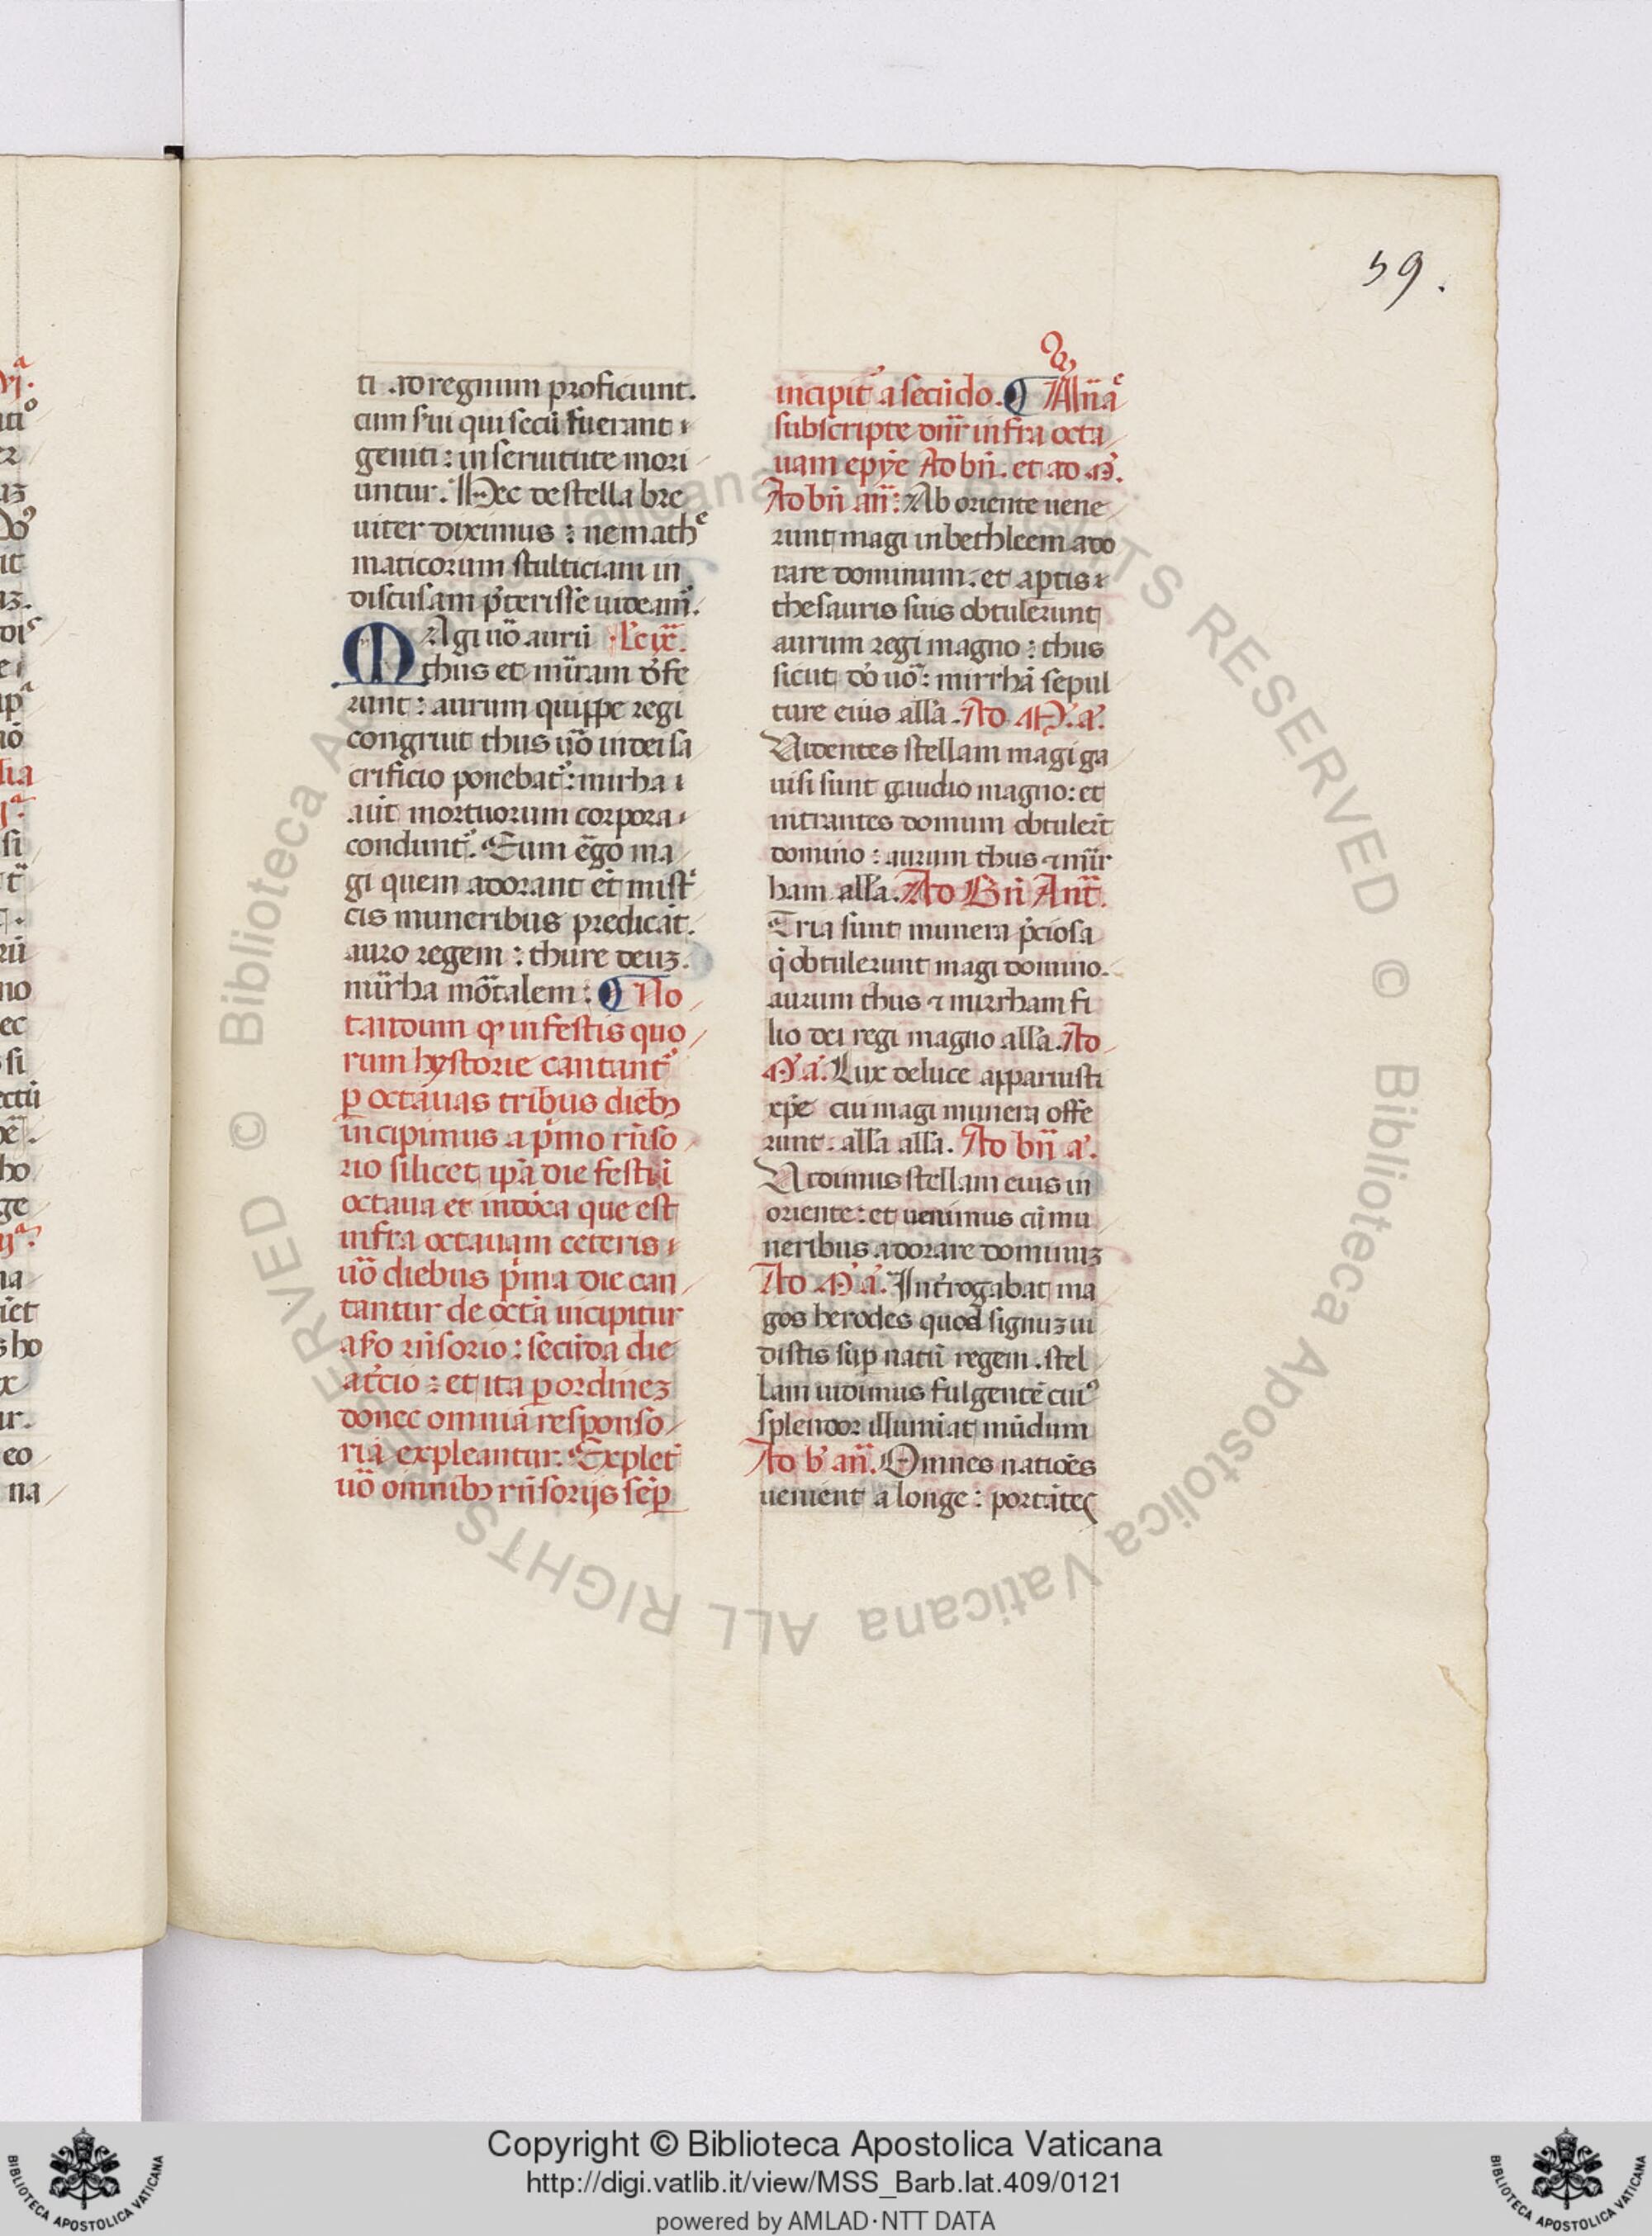 59.
ti .ad regnum proficiunt.
cum sui qui secū fuerant ı
geniti : in seruitute mori
untur. Hec de stella bre
uiter diximus : ne mathe
maticorum stulticiam in
discusam p̄terisse uideam̄.
Magi uō aurū Lc ix.
thus et mirram defe
runt : aurum quippe regi
congruit thus uō in dei sa
crificio ponebat᷑ : mirha ı
aūt mortuorum corpora ı
condunt᷑. Eum ego ma
gi quem adorant et mist
cis muneribus predicāt.
auro regem : thure deuꝫ.
mirrha mōtalem : ¶ No
tandum ꝙ in festis quo
rum hystorie cantant᷑
ꝑ octauas tribus diebꝫ
incipimus a p̄mo rn̄so
rio silicet ip̄a die festi ī
octaua et in dōica que est
infra octauam ceteris ı
uō diebus p̄ma die can
tantur de octā incipitur
a ṗo rn̄sorio : secūda die
a t̄cio : et ita ꝑ ordineꝫ
donec omnia responso
ria expleantur. Explet᷑
uō omnibꝫ rn̄sorijs semꝑ
incipit᷑ a secūdo. ¶ An̄e
subscripte dn̄r infra octa
uam epȳe Ad bn̄. et ad M̄.
Ad bn̄ an̄ : Ab oriente uene
runt magi in bethleem ado
rare dominum. et aptis ı
thesauris suis obtulerunt
aurum regi magno : thus
sicut dō uō : mirrhā sepul
ture eius alla. Ad M̄. a.
Uidentes stellam magi ga
uisi sunt gaudio magno : et
intrantes domum obtulert̄
domino : aurum thus ⁊ mir
ham alla. Ad Bn̄ Ant̄.
Tria sunt munera p̄ciosa
q̄ obtulerunt magi domino.
aurum thus ⁊ mirrham fi
lio dei regi magno alla. Ad
M̄ a. Lux de luce apparuisti
xp̄e cui magi munera offe
runt. alla alla. Ad bn̄ a.
Uidimus stellam eius in
oriente : et uenimus cū mu
neribus adorare dominuꝫ
Ad M̄ a. Int̄rogabat ma
gos herodes quod signuꝫ ui
distis suꝑ natū regem. stel
lam uidimus fulgentē cui᷒
splendor illumīat mūdum
Ad b̄ an̄. Omnes natiōes
uenient a longe : portātes
Copyright © Biblioteca Apostolica Vaticana
http://digi.vatlib.it/view/MSS_Barb.lat.409/0121
powered by AMLAD·NTT DATA
BIBLIOTECA APOSTOLICA VATICANA
BIBLIOTECA APOSTOLICA VATICANA
© Biblioteca Apostolica Vaticana ALL RIGHTS RESERVED
© Biblioteca Apostolica Vaticana ALL RIGHTS RESERVED